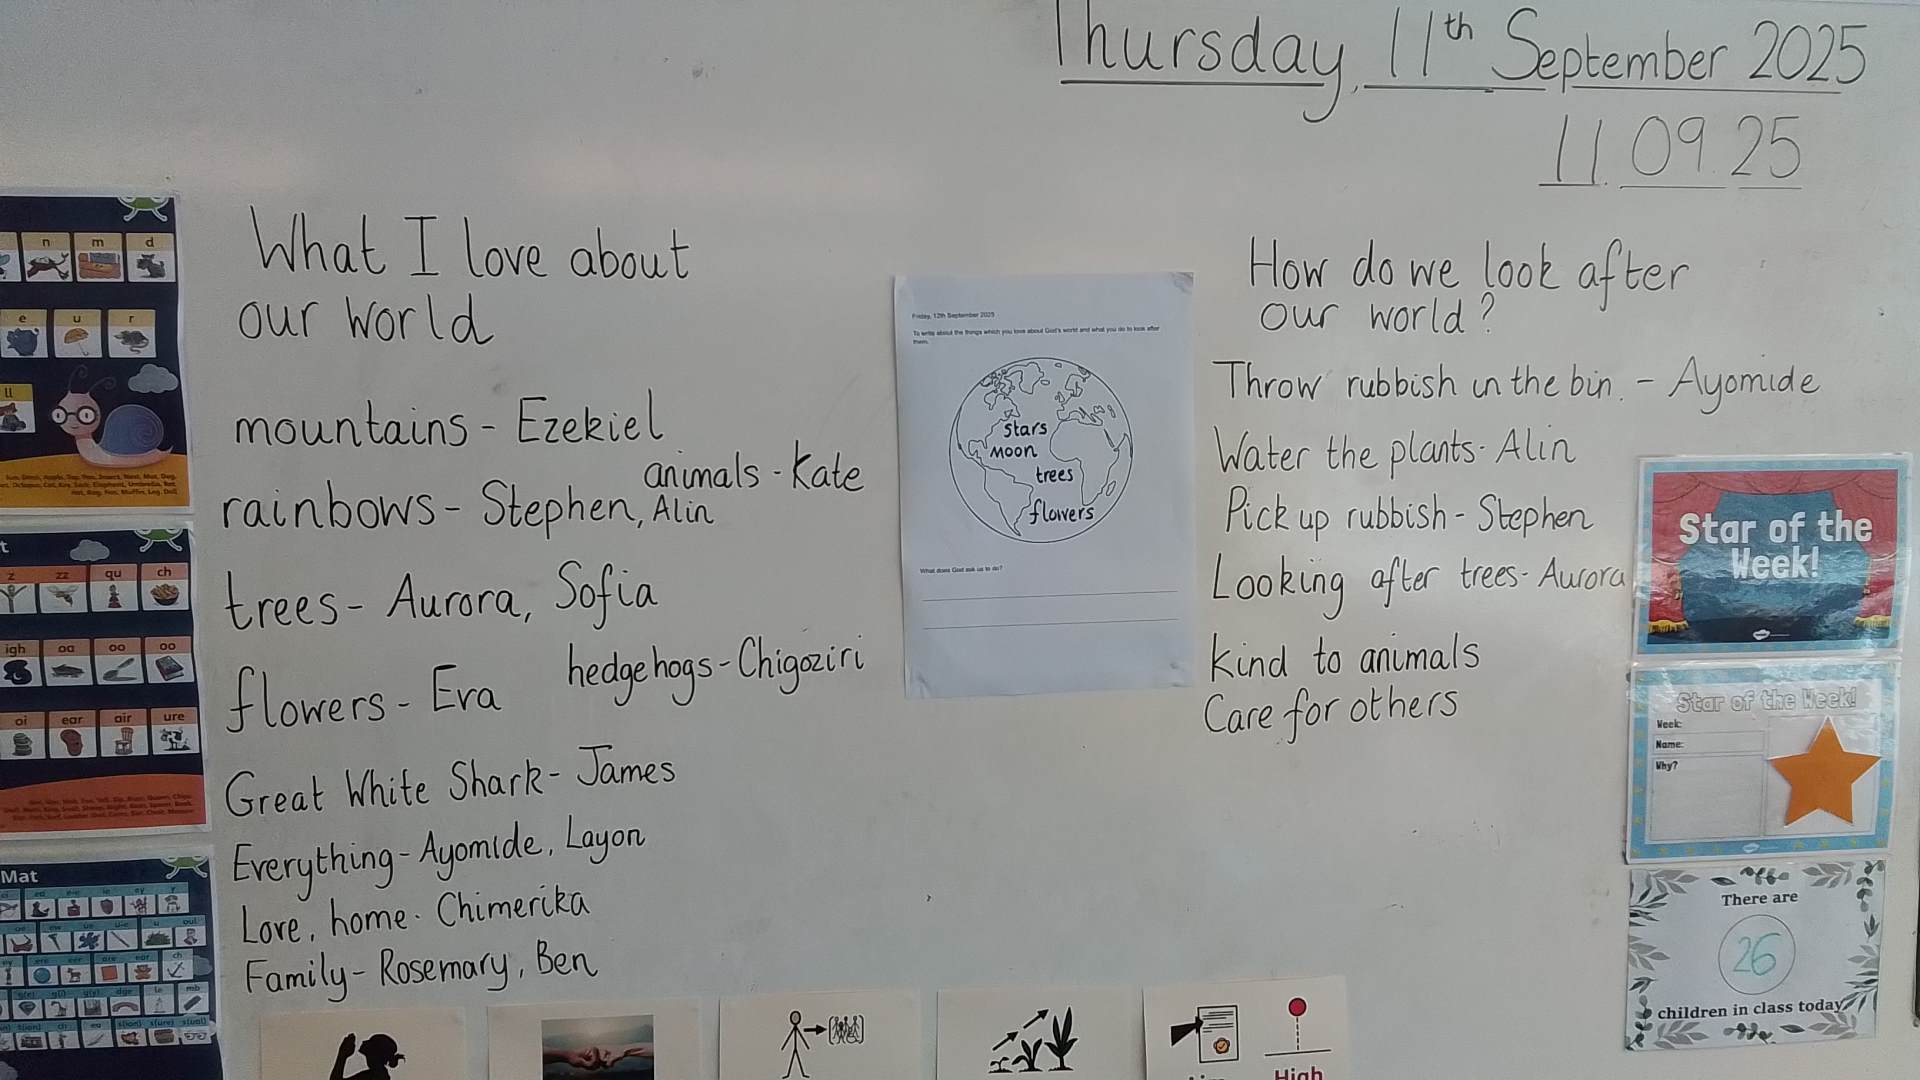 Thursday, 11th September 2025
11.09.25
What I love about
our world
mountains - Ezekiel
animals - Kate
rainbows - Stephen, Alin
trees - Aurora, Sofia
hedgehogs - Chigoziri
flowers - Eva
Great White Shark - James
Everything - Ayomide, Layon
Love, home - Chimerika
Family - Rosemary, Ben
Friday, 12th September 2025
To write about the things which you love about God's world and what you do to look after
them.
stars
moon
trees
flowers
What does God ask us to do?
How do we look after
our world?
Throw rubbish in the bin. - Ayomide
Water the plants - Alin
Pick up rubbish - Stephen
Looking after trees - Aurora
Kind to animals
Care for others
Star of the
Week!
Star of the Week!
Week:
Name:
Why?
There are
26
children in class today
n m d
e u r
ll
z zz qu ch
igh oa oo oo
oi ear air ure
Mat
High